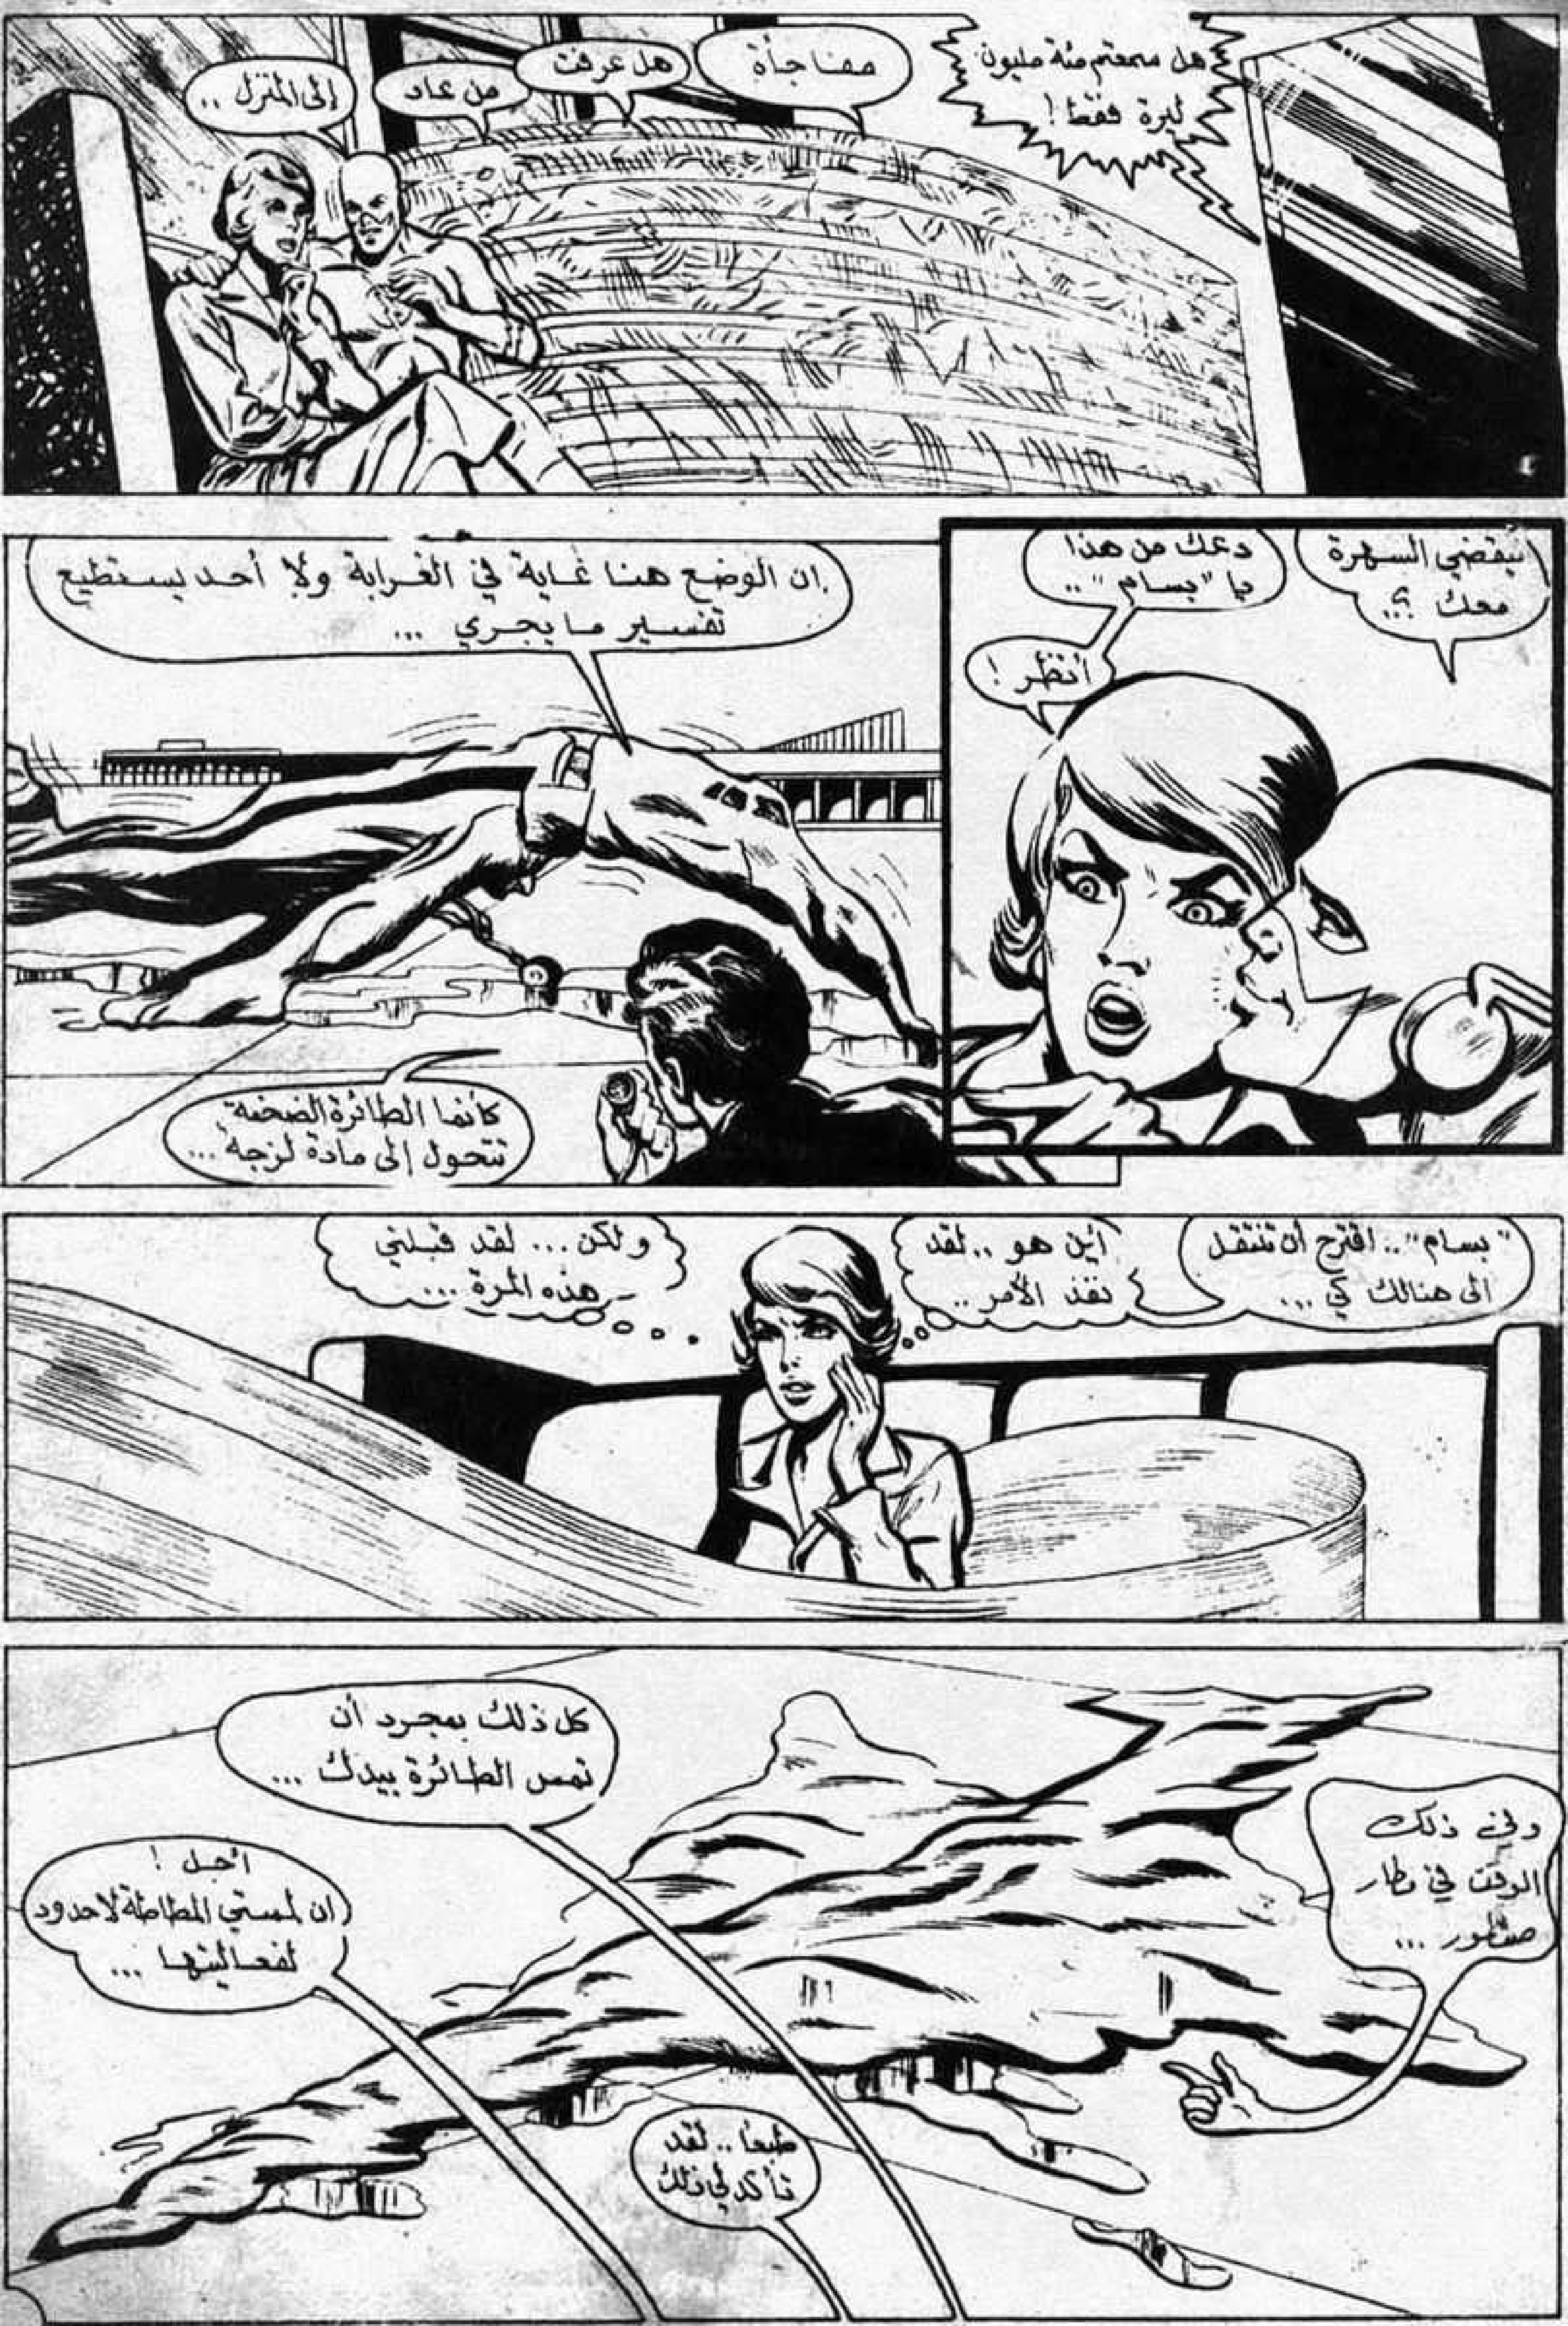 هل سمعتم مئة مليون
ليرة فقط!
مفاجأة
هل عرفت
من عاد
إلى المنزل ..
ليقضي السهرة
معك ؟..
دعك من هذا
يا "بسام" ..
أنظر !
ان الوضع هنا غاية في الغرابة ولا أحد يستطيع
تفسير ما يجري ...
كأنما الطائرة الضخمة
تتحول إلى مادة لزجة ...
"بسام" .. اقترح أن تنتقل
الى هنالك كي ...
أين هو .. لقد
نفذ الأمر ..
ولكن ... لقد قبلني
هذه المرة ...
وفي ذلك
الوقت في مطار
...
كل ذلك بمجرد أن
تمس الطائرة بيدك ...
أجل !
ان لمستي المطاطة لا حدود
لفعاليتها ...
طبعا .. لقد
تأكد لي ذلك